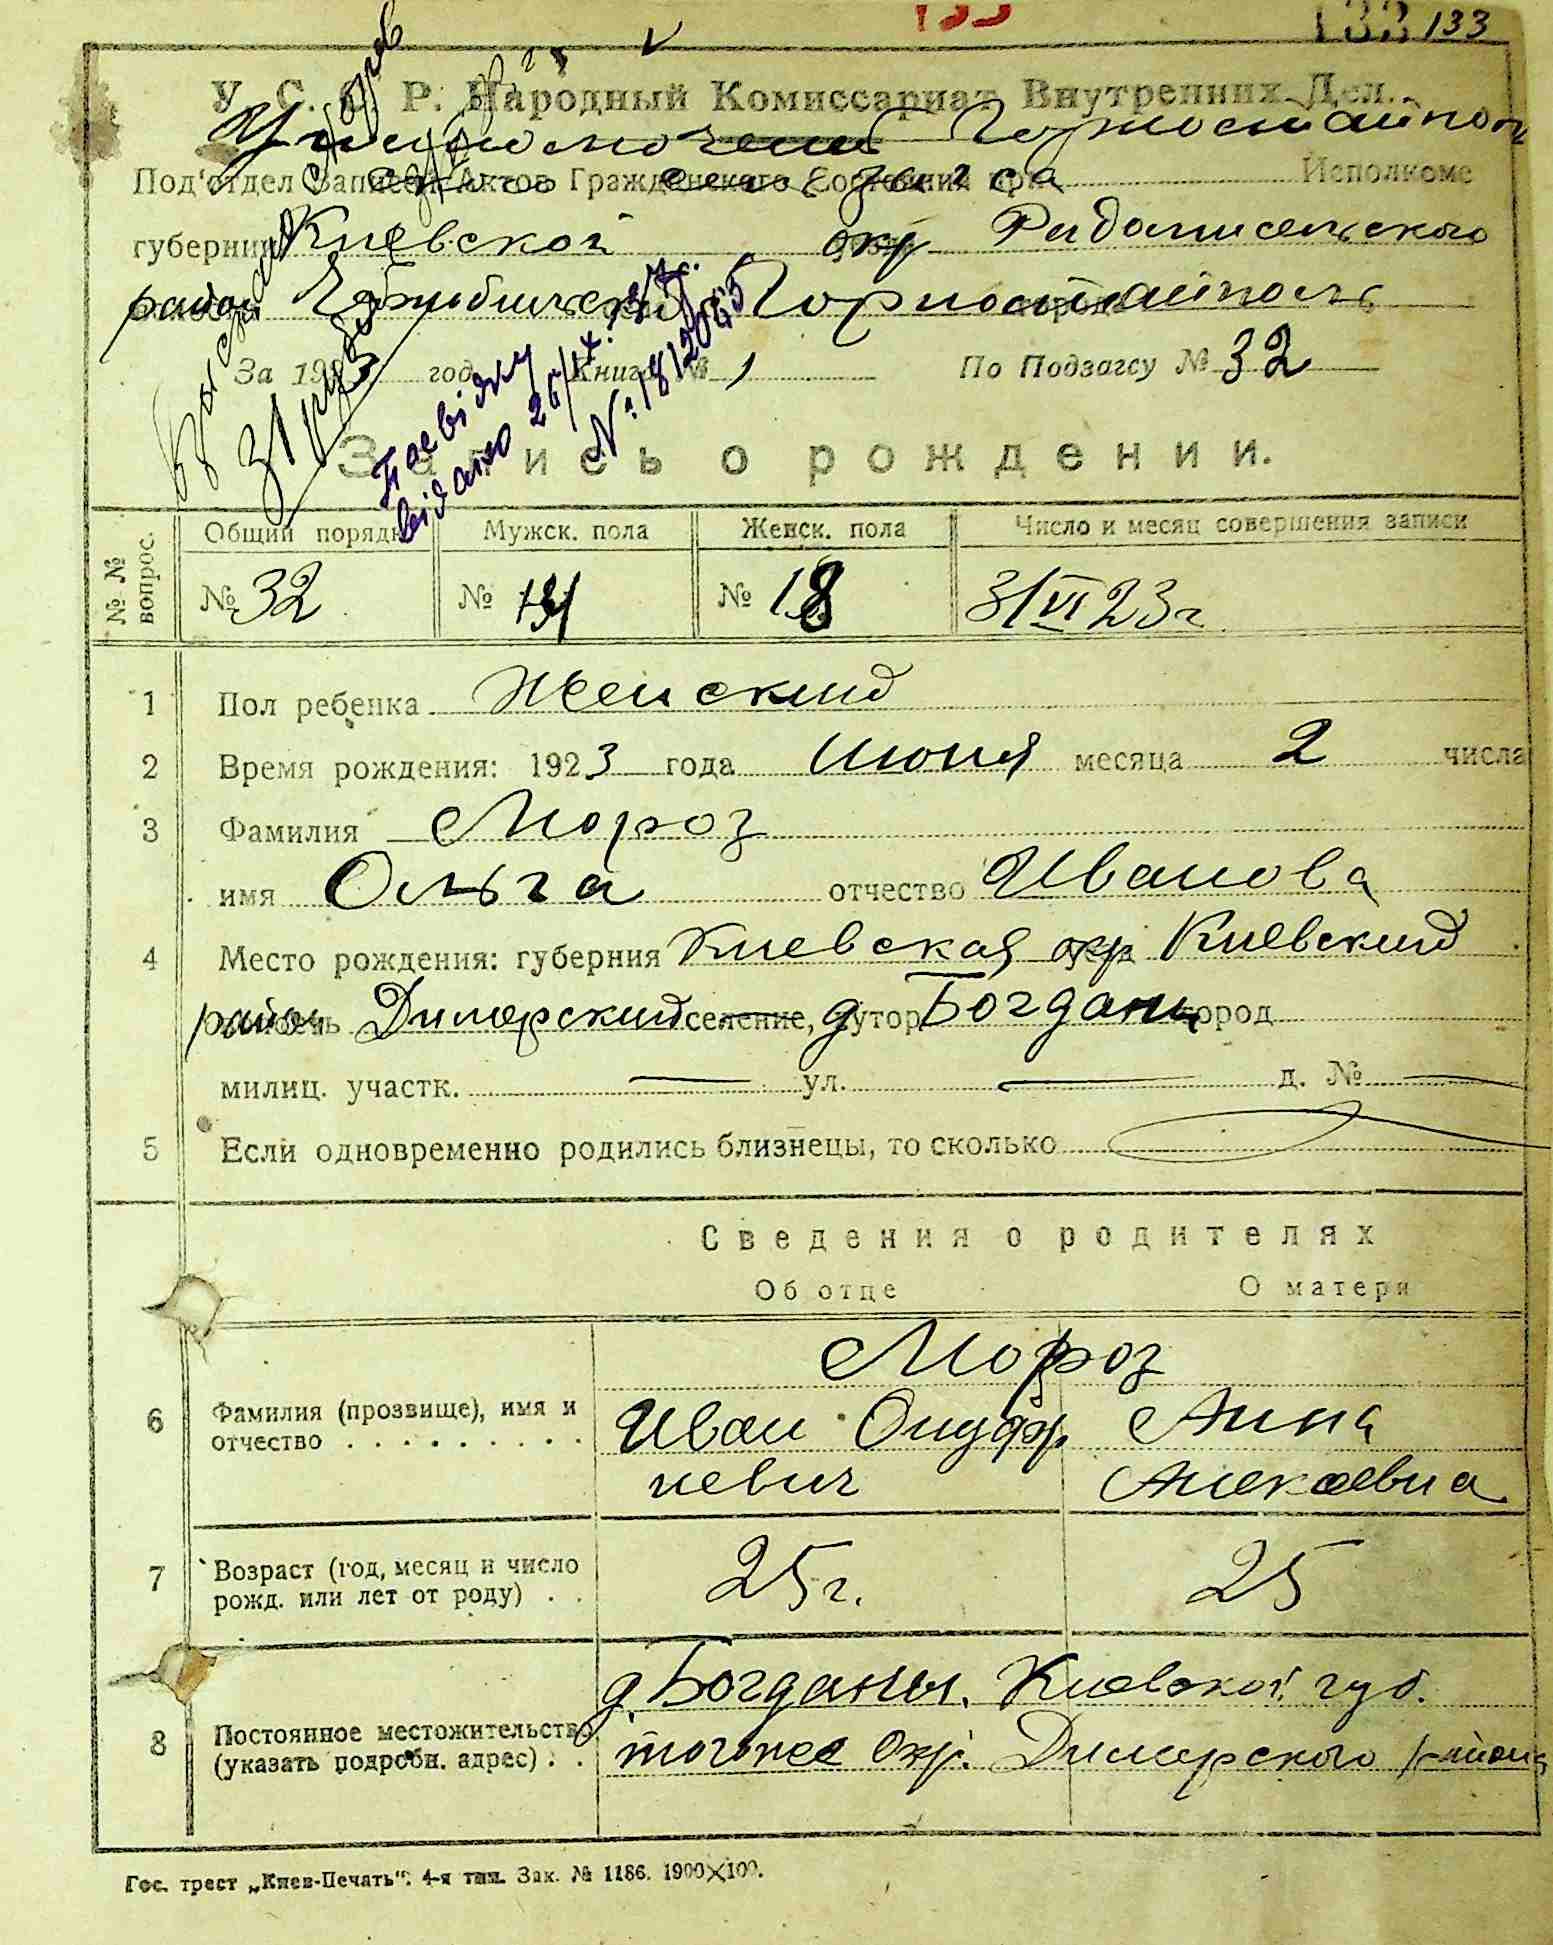 133 133
У. С. С. Р. Народный Комиссариат Внутренних Дел.
Уполномочен Горностайпол
Под'отдел Записей Актов Гражданского Состояния при Исполкоме
загса
губернии Киевской окр Радомисельского
район Горностайполь
За 1923 год Книга № 1 По Подзагсу № 32
видано 26/IX
№ 1812045
Запись о рождении.
№ № вопрос.
Общий порядк Мужск. пола Женск. пола Число и месяц совершения записи
№ 32 № 14 № 18 31/VI 23 г.
1 Пол ребенка Женский
2 Время рождения: 1923 года июня месяца 2 числа
3 Фамилия Мороз
имя Ольга отчество Иванова
4 Место рождения: губерния Киевская окр Киевский
район Димерский селение, хутор д Богданы город
милиц. участк. — ул. — д. № —
5 Если одновременно родились близнецы, то сколько
Сведения о родителях
Об отце О матери
Мороз
6 Фамилия (прозвище), имя и отчество Иван Онуфр Анна
иевич Алексеевна
7 Возраст (год, месяц и число рожд. или лет от роду) 25 г. 25
д. Богданы. Киевской губ.
8 Постоянное местожительство (указать подробн. адрес) тогоже окр. Димерского района
Гос. трест „Киев-Печать". 4-я тип. Зак. № 1186. 1900×100.